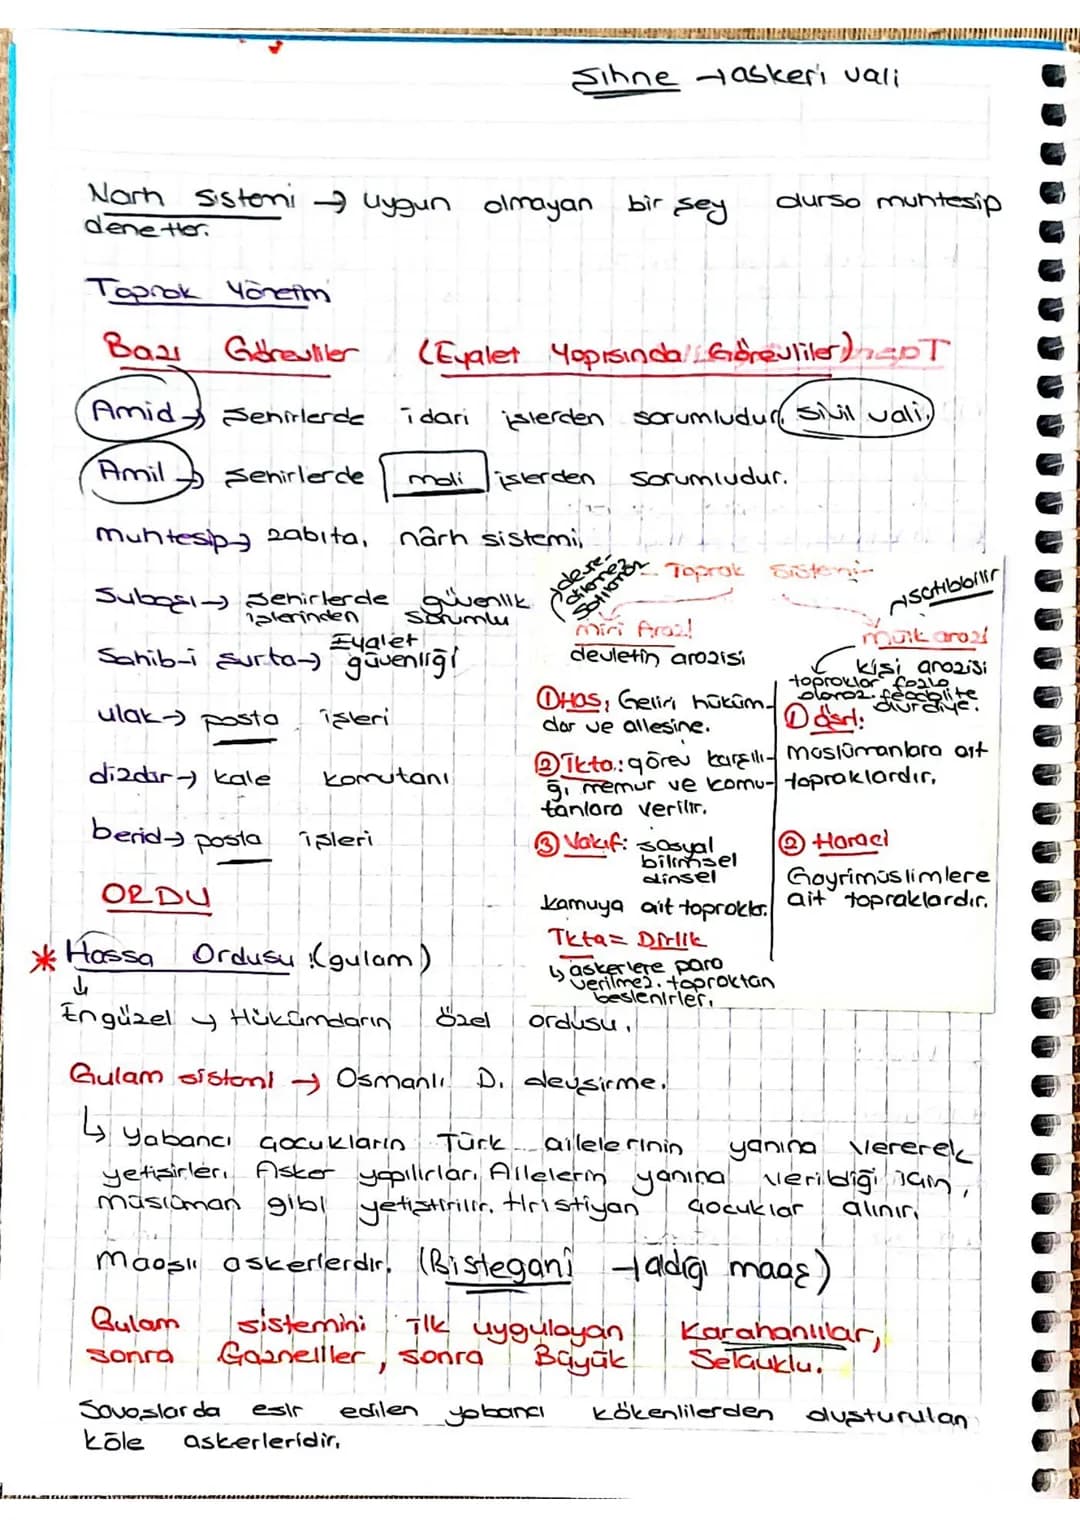 Şıhne → askeri vali
Narh sistemi → uygun olmayan bir şey olursa muhtesip
denetler.
Toprak Yönetim
Bazı Görevliler (Eyalet Yapısında Görevliler)
Amid → Şehirlerde idari işlerden sorumludur. sivil vali.
Amil → Şehirlerde mali işlerden sorumludur.
muhtesip → zabıta, nârh sistemi,
Subaşı → şehirlerde güvenlik
işlerinden sorumlu
Sahib-i şurta → Eyalet
güvenliği
ulak → posta işleri
dizdar → kale komutanı
berid → posta işleri
Toprak Sistemi
satılabilir
miri Arazi
devletin arazisi
① Has, Geliri hüküm-
dar ve ailesine.
② İkta: görev karşılı-
ğı memur ve komu-
tanlara verilir.
③ Vakıf: sosyal
bilimsel
dinsel
kamuya ait toprakl.
İkta = Dirlik
↳ askerlere para
verilmez. topraktan
beslenirler.
mülk arazi
kişi arazisi
topraklar fazla
olamaz. feodalite
olur diye.
① öşri:
müslümanlara ait
topraklardır.
② Haraci
Gayrimüslimlere
ait topraklardır.
ORDU
* Hassa Ordusu (gulam)
↓
En güzel → Hükümdarın özel ordusu.
Gulam sistemi → Osmanlı D. devşirme.
↳ yabancı çocukların Türk ailelerinin yanına vererek
yetişirler. Asker yapılırlar. Ailelerin yanına verildiği için,
müslüman gibi yetiştirilir. Hristiyan çocuklar alınır.
Maaşlı askerlerdir. (Bistegani → aldığı maaş)
Gulam sistemini ilk uygulayan Karahanlılar,
sonra Gazneliler, sonra Büyük Selçuklu.
Savaşlarda esir edilen yabancı kökenlilerden oluşturulan
köle askerleridir.